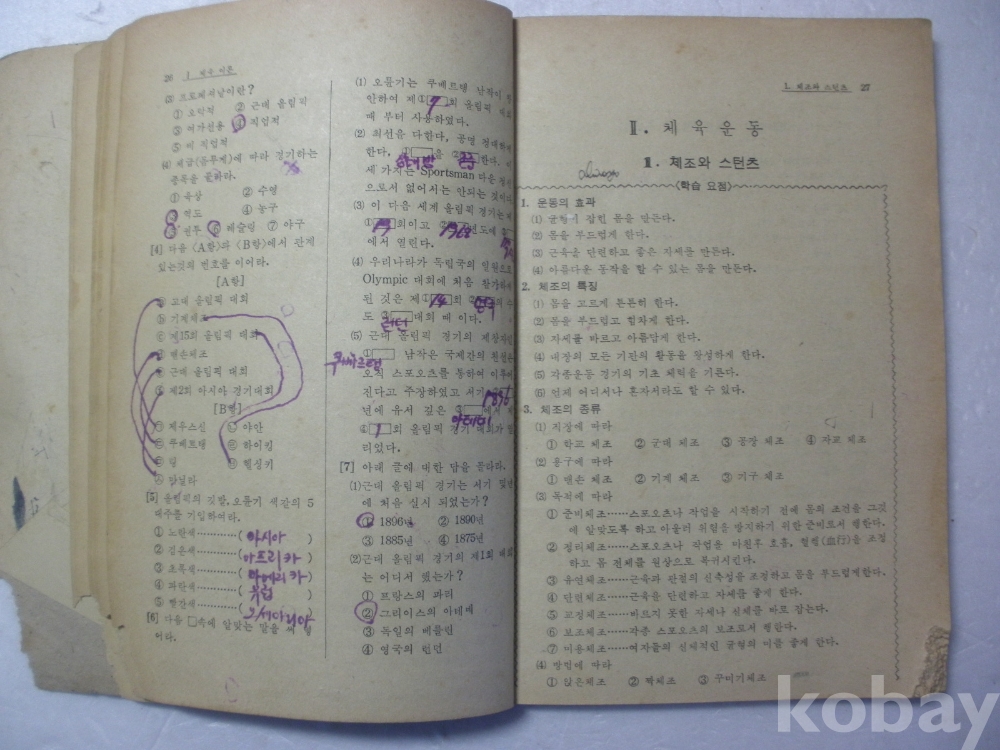 26 Ⅰ 체육 이론
(3) 프로페셔날이란?
① 오락적 ② 근대 올림픽
③ 여가선용 ④ 직업적
⑤ 비 직업적
(4) 체급(몸무게)에 따라 경기하는
종목을 골라라.
① 육상 ② 수영
③ 역도 ④ 농구
⑤ 권투 ⑥ 레슬링 ⑦ 야구
[4] 다음 〈A항〉과 〈B항〉에서 관계
있는것의 번호를 이어라.
[A항]
고대 올림픽 대회
기계체조
제15회 올림픽 대회
맨손체조
근대 올림픽 대회
제2회 아시아 경기대회
[B항]
제우스신 야만
쿠베르탱 하이킹
링 헬싱키
마닐라
[5] 올림픽의 깃발, 오륜기 색깔의 5
대주를 기입하여라.
① 노란색………( 아시아 )
② 검은색………( 아프리카 )
③ 초록색………( 아메리카 )
④ 파란색………( 유럽 )
⑤ 빨간색………( 오세아니아 )
[6] 다음 □속에 알맞는 말을 써 넣
어라.
(1) 오륜기는 쿠베르탱 남작이
안하여 제① 7 회 올림픽 대회
때 부터 사용하였다.
(2) 최선을 다한다, 공명 정대하게
한다, ① 을 ② 한다. 이
세 가지는 Sportsman 다운
으로서 없어서는 안되는 것이다.
(3) 이 다음 세계 올림픽 경기는 제
① 19 회이고 1968 년도에
에서 열린다.
(4) 우리나라가 독립국의 일원으로
Olympic 대회에 처음 참가하게
된 것은 제① 14 회 ② 영국 의 수
도 ③ 런던 대회 때 이다.
(5) 근대 올림픽 경기의 제창자인
① 쿠베르탱 남작은 국제간의 친선은
오직 스포츠를 통하여 이루어
진다고 주장하였고 서기 1896
년에 유서 깊은 ③ 아테네 에서 제
④ 1 회 올림픽 경기 대회가 열
리었다.
[7] 아래 글에 대한 답을 골라라.
(1)근대 올림픽 경기는 서기 몇년
에 처음 실시 되었는가?
① 1896년 ② 1890년
③ 1885년 ④ 1875년
(2)근대 올림픽 경기의 제1회 대회
는 어디서 했는가?
① 프랑스의 파리
② 그리이스의 아테네
③ 독일의 베를린
④ 영국의 런던
1. 체조와 스턴츠 27
Ⅱ. 체 육 운 동
1. 체조와 스턴츠
〈학습 요점〉
1. 운동의 효과
(1) 균형이 잡힌 몸을 만든다.
(2) 몸을 부드럽게 한다.
(3) 근육을 단련하고 좋은 자세를 만든다.
(4) 아름다운 동작을 할 수 있는 몸을 만든다.
2. 체조의 특징
(1) 몸을 고르게 튼튼히 한다.
(2) 몸을 부드럽고 힘차게 한다.
(3) 자세를 바르고 아름답게 한다.
(4) 내장의 모든 기관의 활동을 왕성하게 한다.
(5) 각종운동 경기의 기초 체력을 기른다.
(6) 언제 어디서나 혼자서라도 할 수 있다.
3. 체조의 종류
(1) 직장에 따라
① 학교 체조 ② 군대 체조 ③ 공장 체조 ④ 자교 체조
(2) 용구에 따라
① 맨손 체조 ② 기계 체조 ③ 기구 체조
(3) 목적에 따라
① 준비체조……스포오츠나 작업을 시작하기 전에 몸의 조건을 그것
에 알맞도록 하고 아울러 위험을 방지하기 위한 준비로서 행한다.
② 정리체조……스포오츠나 작업을 마친후 호흡, 혈행(血行)을 조정
하고 몸 전체를 원상으로 복귀시킨다.
③ 유연체조……근육과 관절의 신축성을 조정하고 몸을 부드럽게한다.
④ 단련체조……근육을 단련하고 자세를 좋게 한다.
⑤ 교정체조……바르지 못한 자세나 신체를 바로 잡는다.
⑥ 보조체조……각종 스포오츠의 보조로서 행한다.
⑦ 미용체조……여자들의 신체적인 균형의 미를 좋게 한다.
(4) 방법에 따라
① 앉은체조 ② 짝체조 ③ 꾸미기체조
kobay